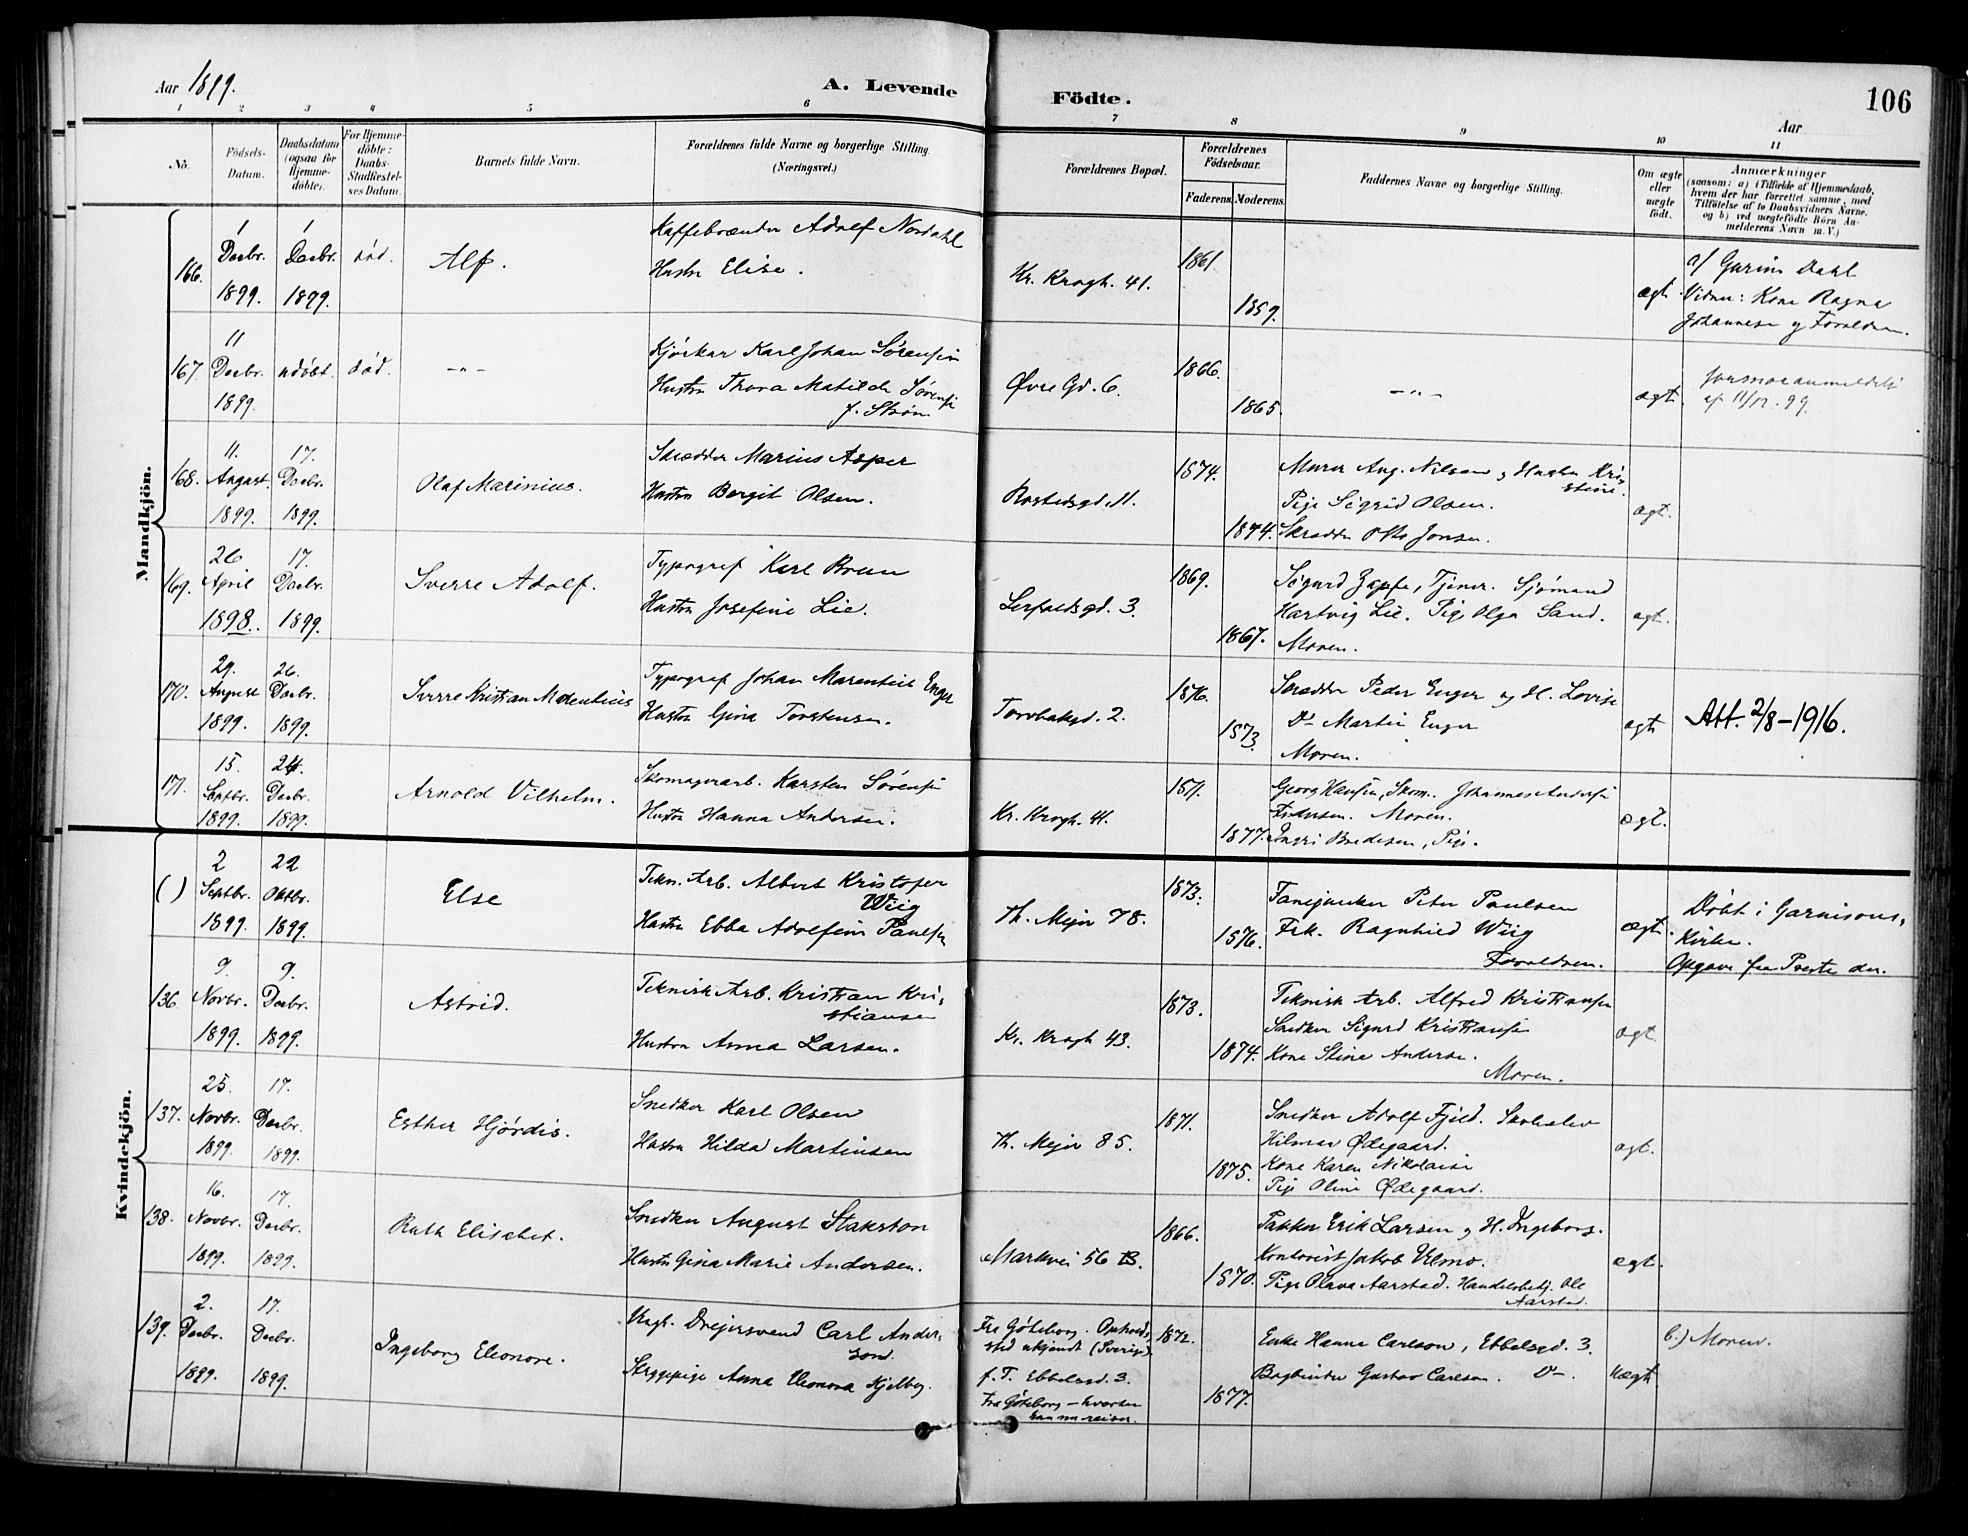 Aar 1899.
A. Levende
Födte.
106
Aar
1 2 3 4 5 6 7 8 9 10 11
No.
Födsels-Datum.
Daabsdatum (ogsaa for Hjemme-döbte).
For Hjemme-döbte: Daabs-Stadfæstel-ses Datum.
Barnets fulde Navn.
Forældrenes fulde Navne og borgerlige Stilling. (Næringsvei.)
Forældrenes Bopæl.
Forældrenes Födselsaar.
Faderens Moderens
Faddernes Navne og borgerlige Stilling.
Om ægte eller uægte födt.
Anmærkninger
(saasom: a) i Tilfælde af Hjemmedaab, hvem der har forrettet samme, med Tilföielse af to Daabsvidners Navne. og b) ved uægtefödte Börn An-melderens Navn m. V.)
Mandkjön.
166. 1 Decbr. 1899. 1 Decbr. 1899. död. Alf.
Kaffebrænder Adolf Nordahl
Hustru Elise.
Kr. Krogh. 41. 1861. 1859. ægt.
Vidner: Kone Ragna
Johannesen og Forældren.
167. 11 Decbr. 1899. udöbt. död. -"-
Kjörekar Karl Johan Sørensen
Hustru Thora Matilde Sørensen
f. Strøm
Øvre Gd. 6. 1866. 1865. -"- ægt.
af 11/12. 99.
168. 11. August 1899. 17. Decbr. 1899. Olaf Marinius.
Skrædder Marius Asper
Hustru Bergit Olsen.
Rostedsgd. 11. 1874. 1874.
Murer Aug. Nilsen og Hustru Kri-
stine.
Pige Sigrid Olsen.
Skrædder Otto Jonsen.
ægt.
169. 26 April 1898. 17. Decbr. 1899. Sverre Adolf.
Typograf Karl Brun
Hustru Josefine Lie.
3. 1869. 1867.
Sigurd Zapfe, Tjener. Sjømand
Hartvig Lie. Pige Olga Sand.
Moren.
ægt.
170. 29. August 1899. 26. Decbr. 1899. Sverre Kristian Marentius
Typograf Johan Marentius Enger
Hustru Gina Torstensen.
Torvbakgd. 2. 1876. 1873.
Skrædder Peder Enger og H. Lovise
Do Martin Enger
Moren.
ægt. Att. 2/8-1916.
171. 15. Septbr. 1899. 24. Decbr. 1899. Arnold Vilhelm.
Skomagerarb. Karsten Sørensen
Hustru Hanna Andersen.
Kr. Krogh. 41. 1871. 1877.
Georg Hansen, Skom. Johannes Andersen
Moren.
Ingri Bredesen, Pige.
ægt.
Kvindekjön.
( ) 2 Septbr. 1899. 22 Oktbr. 1899. Else
Tekn. Arb. Albert Kristofer
Wiig
Hustru Ebba Adolfine Paulsen
Th. Mejer 78. 1873. 1876.
Fanejunker Peter Paulsen
Frk. Ragnhild Wiig
Forældren.
ægt.
Döbt i Garnisons-
kirken.
Opgave fra Præsten der.
136. 9. Novbr. 1899. 9. Decbr. 1899. Astrid.
Teknisk Arb. Kristian Kri-
stiansen
Hustru Anna Larsen.
Kr. Krogh 43. 1873. 1874.
Teknisk Arb. Alfred Kristiansen
Snedker Sigurd Kristiansen
Kone Stine Andersen.
Moren.
ægt.
137. 25. Novbr. 1899. 17. Decbr. 1899. Esther Hjørdis.
Snedker Karl Olsen
Hustru Hilda Martinsen
Th. Mejer 85. 1871. 1875.
Snedker Adolf Fjeld. Skoleelev
Hilmar Ødegaard.
Kone Karen Nikolaisen
Pige Oline Ødegaard.
ægt.
138. 16. Novbr. 1899. 17. Decbr. 1899. Ruth Elisabet.
Snedker August Stakston
Hustru Gina Marie Andersen.
Markvei 56 B. 1866. 1870.
Pakker Erik Larsen og H. Ingeborg.
Kontorist Jakob Ulmo.
Pige Olava Aarstad. Handelsbetj. Ole
Aarstad.
ægt.
139. 2. Decbr. 1899. 17. Decbr. 1899. Ingeborg Eleonore.
Ungk. Drejersvend Carl Anders-
son.
Strygepige Anna Eleonora Hjelberg.
Fra Göteborg. Opholds-
sted ukjendt (Sverige).
f. T. Ebbelsgd. 3.
Fra Göteborg — hvorhen
han nu reiser.
1872. 1877.
Enke Hanna Carlson, Ebbelsgd. 3.
Bogbinder Gustav Carlson. Do-.
Uægt. b.) Moren.